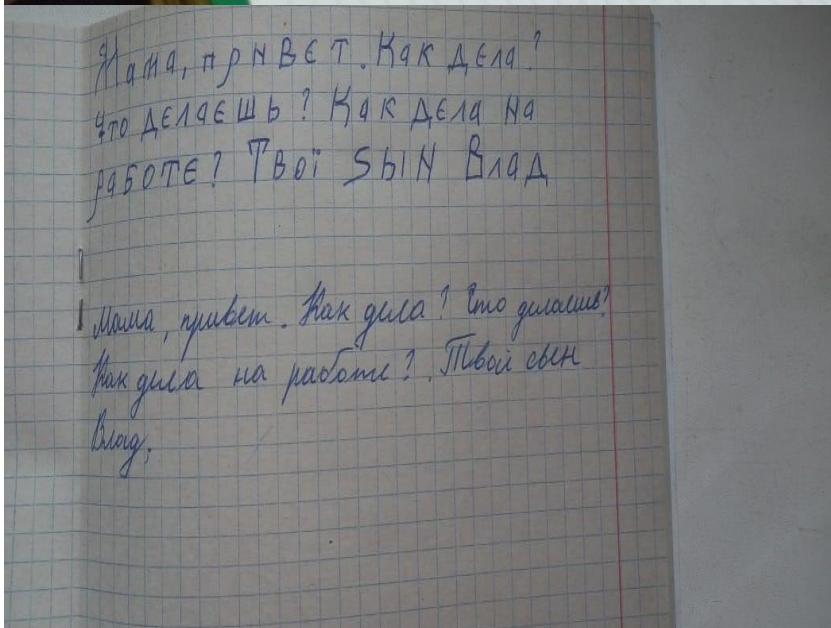 Мама, прNвєт. Как дєла?
Что дєлаєшь? Как дєла на
работє? Твої Sын Влад
Мама, привет. Как дела? Что делаешь?
Как дела на работе? Твой сын
Влад.